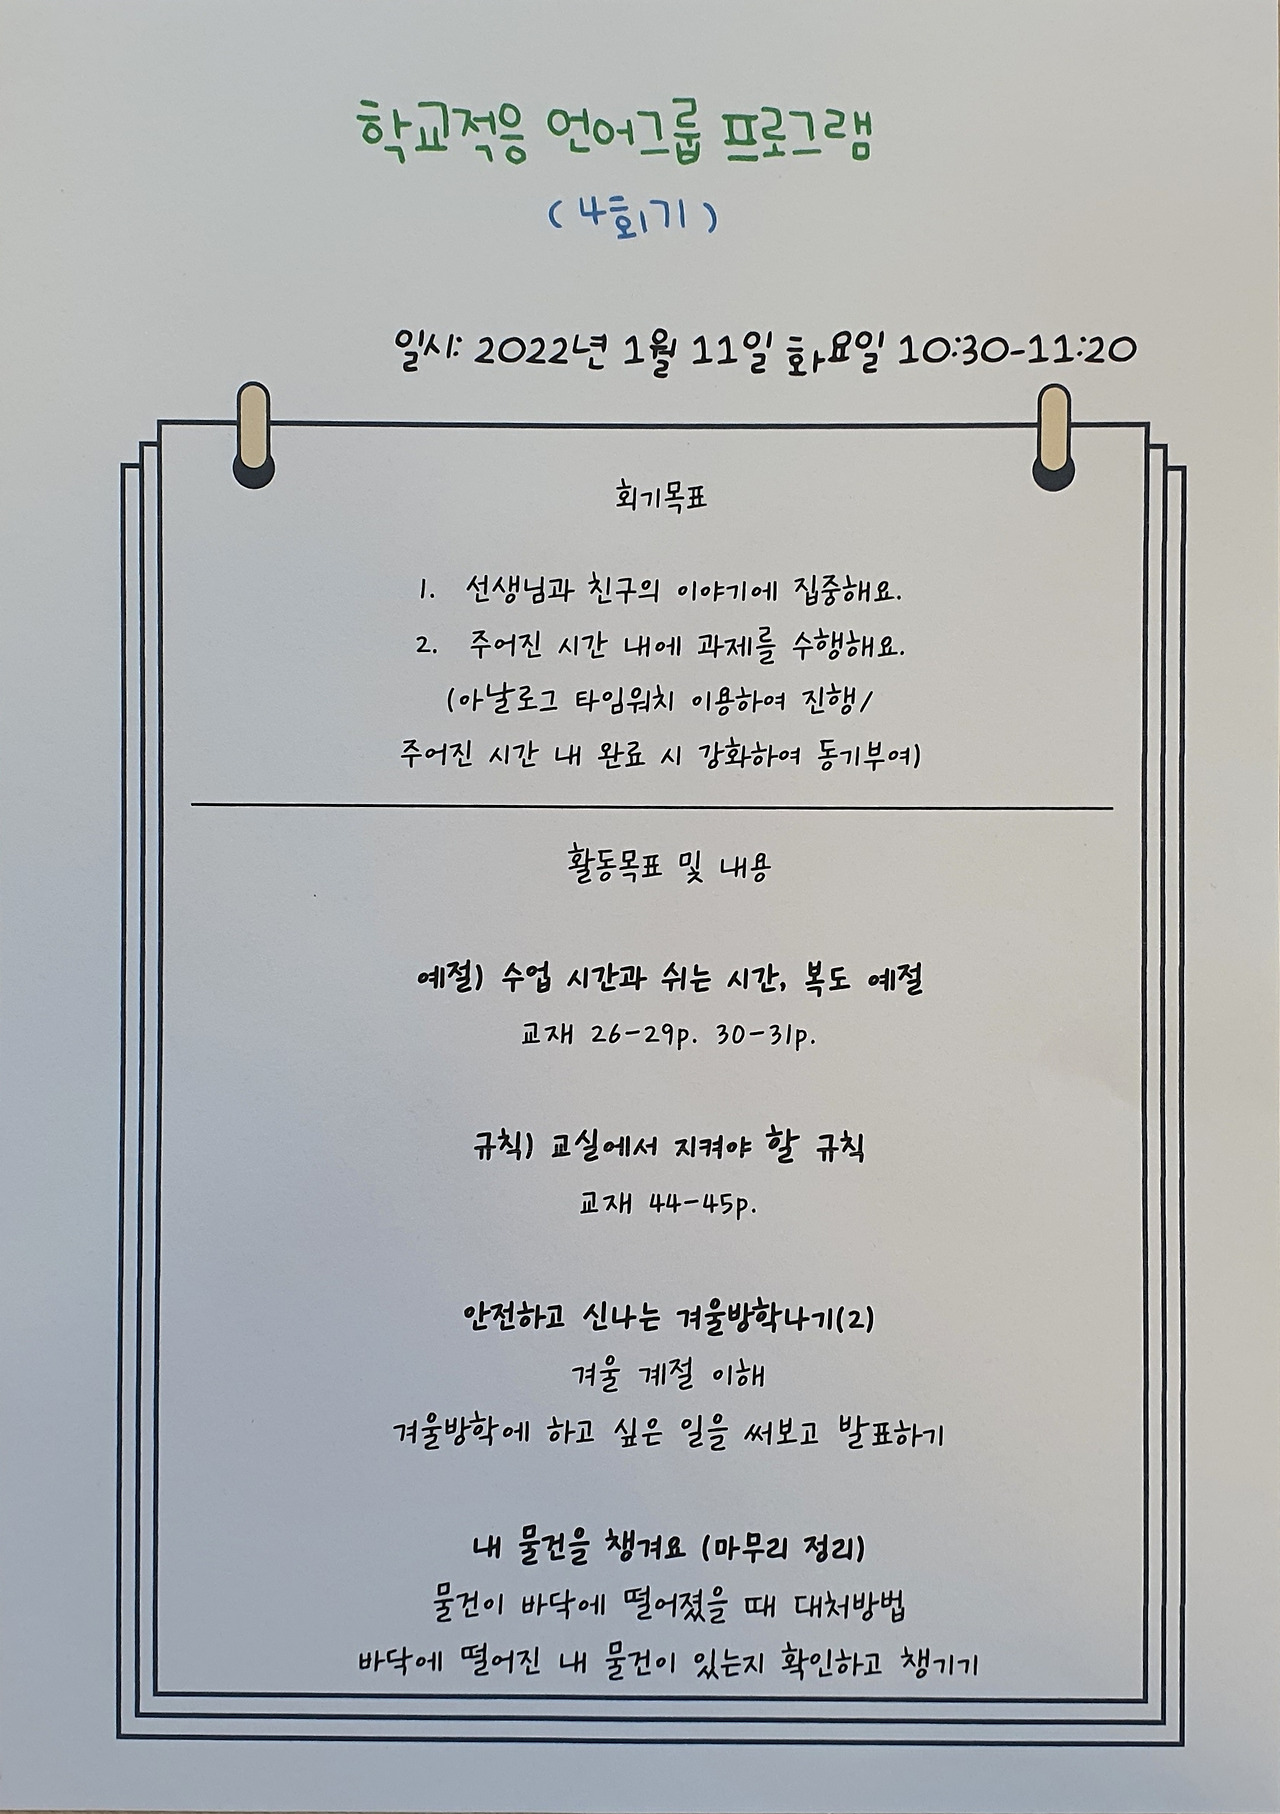 학교적응 언어그룹 프로그램
(4회기)
일시: 2022년 1월 11일 화요일 10:30-11:20
회기목표
1. 선생님과 친구의 이야기에 집중해요.
2. 주어진 시간 내에 과제를 수행해요.
(아날로그 타임워치 이용하여 진행/
주어진 시간 내 완료 시 강화하여 동기부여)
활동목표 및 내용
예절) 수업 시간과 쉬는 시간, 복도 예절
교재 26-29p. 30-31p.
규칙) 교실에서 지켜야 할 규칙
교재 44-45p.
안전하고 신나는 겨울방학나기(2)
겨울 계절 이해
겨울방학에 하고 싶은 일을 써보고 발표하기
내 물건을 챙겨요 (마무리 정리)
물건이 바닥에 떨어졌을 때 대처방법
바닥에 떨어진 내 물건이 있는지 확인하고 챙기기